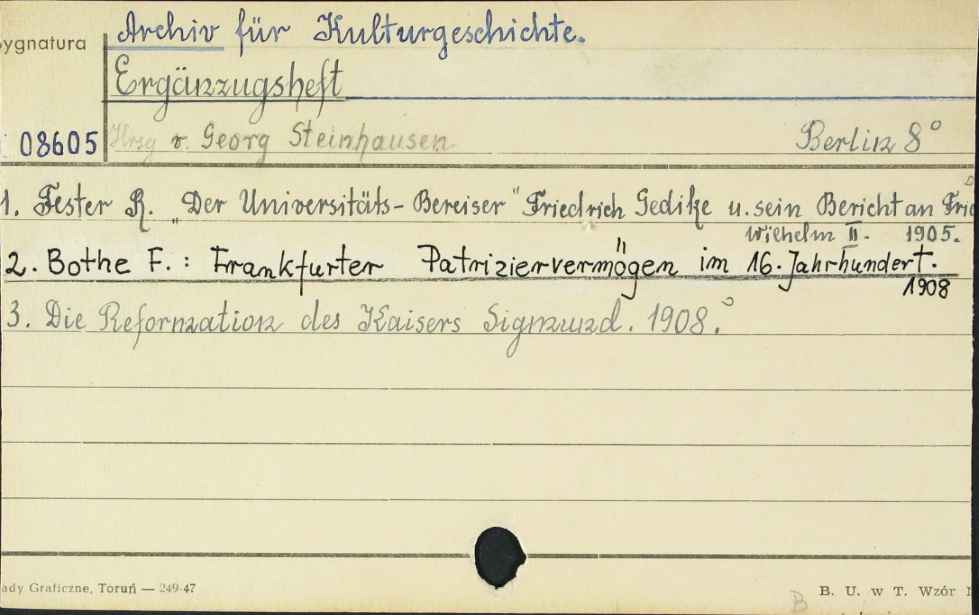 ygnatura
Archiv für Kulturgeschichte.
Ergänzugsheft
08605
Hrsg v. Georg Steinhausen Berlin 8°
1. Fester R. "Der Universitäts-Bereiser" Friedrich Gedike u. sein Bericht an Frie
Wilhelm II. 1905.
2. Bothe F.: Frankfurter Patriziervermögen im 16. Jahrhundert.
1908
3. Die Reformation des Kaisers Sigmund. 1908.
ady Graficzne, Toruń — 249-47
B
B. U. w T. Wzór